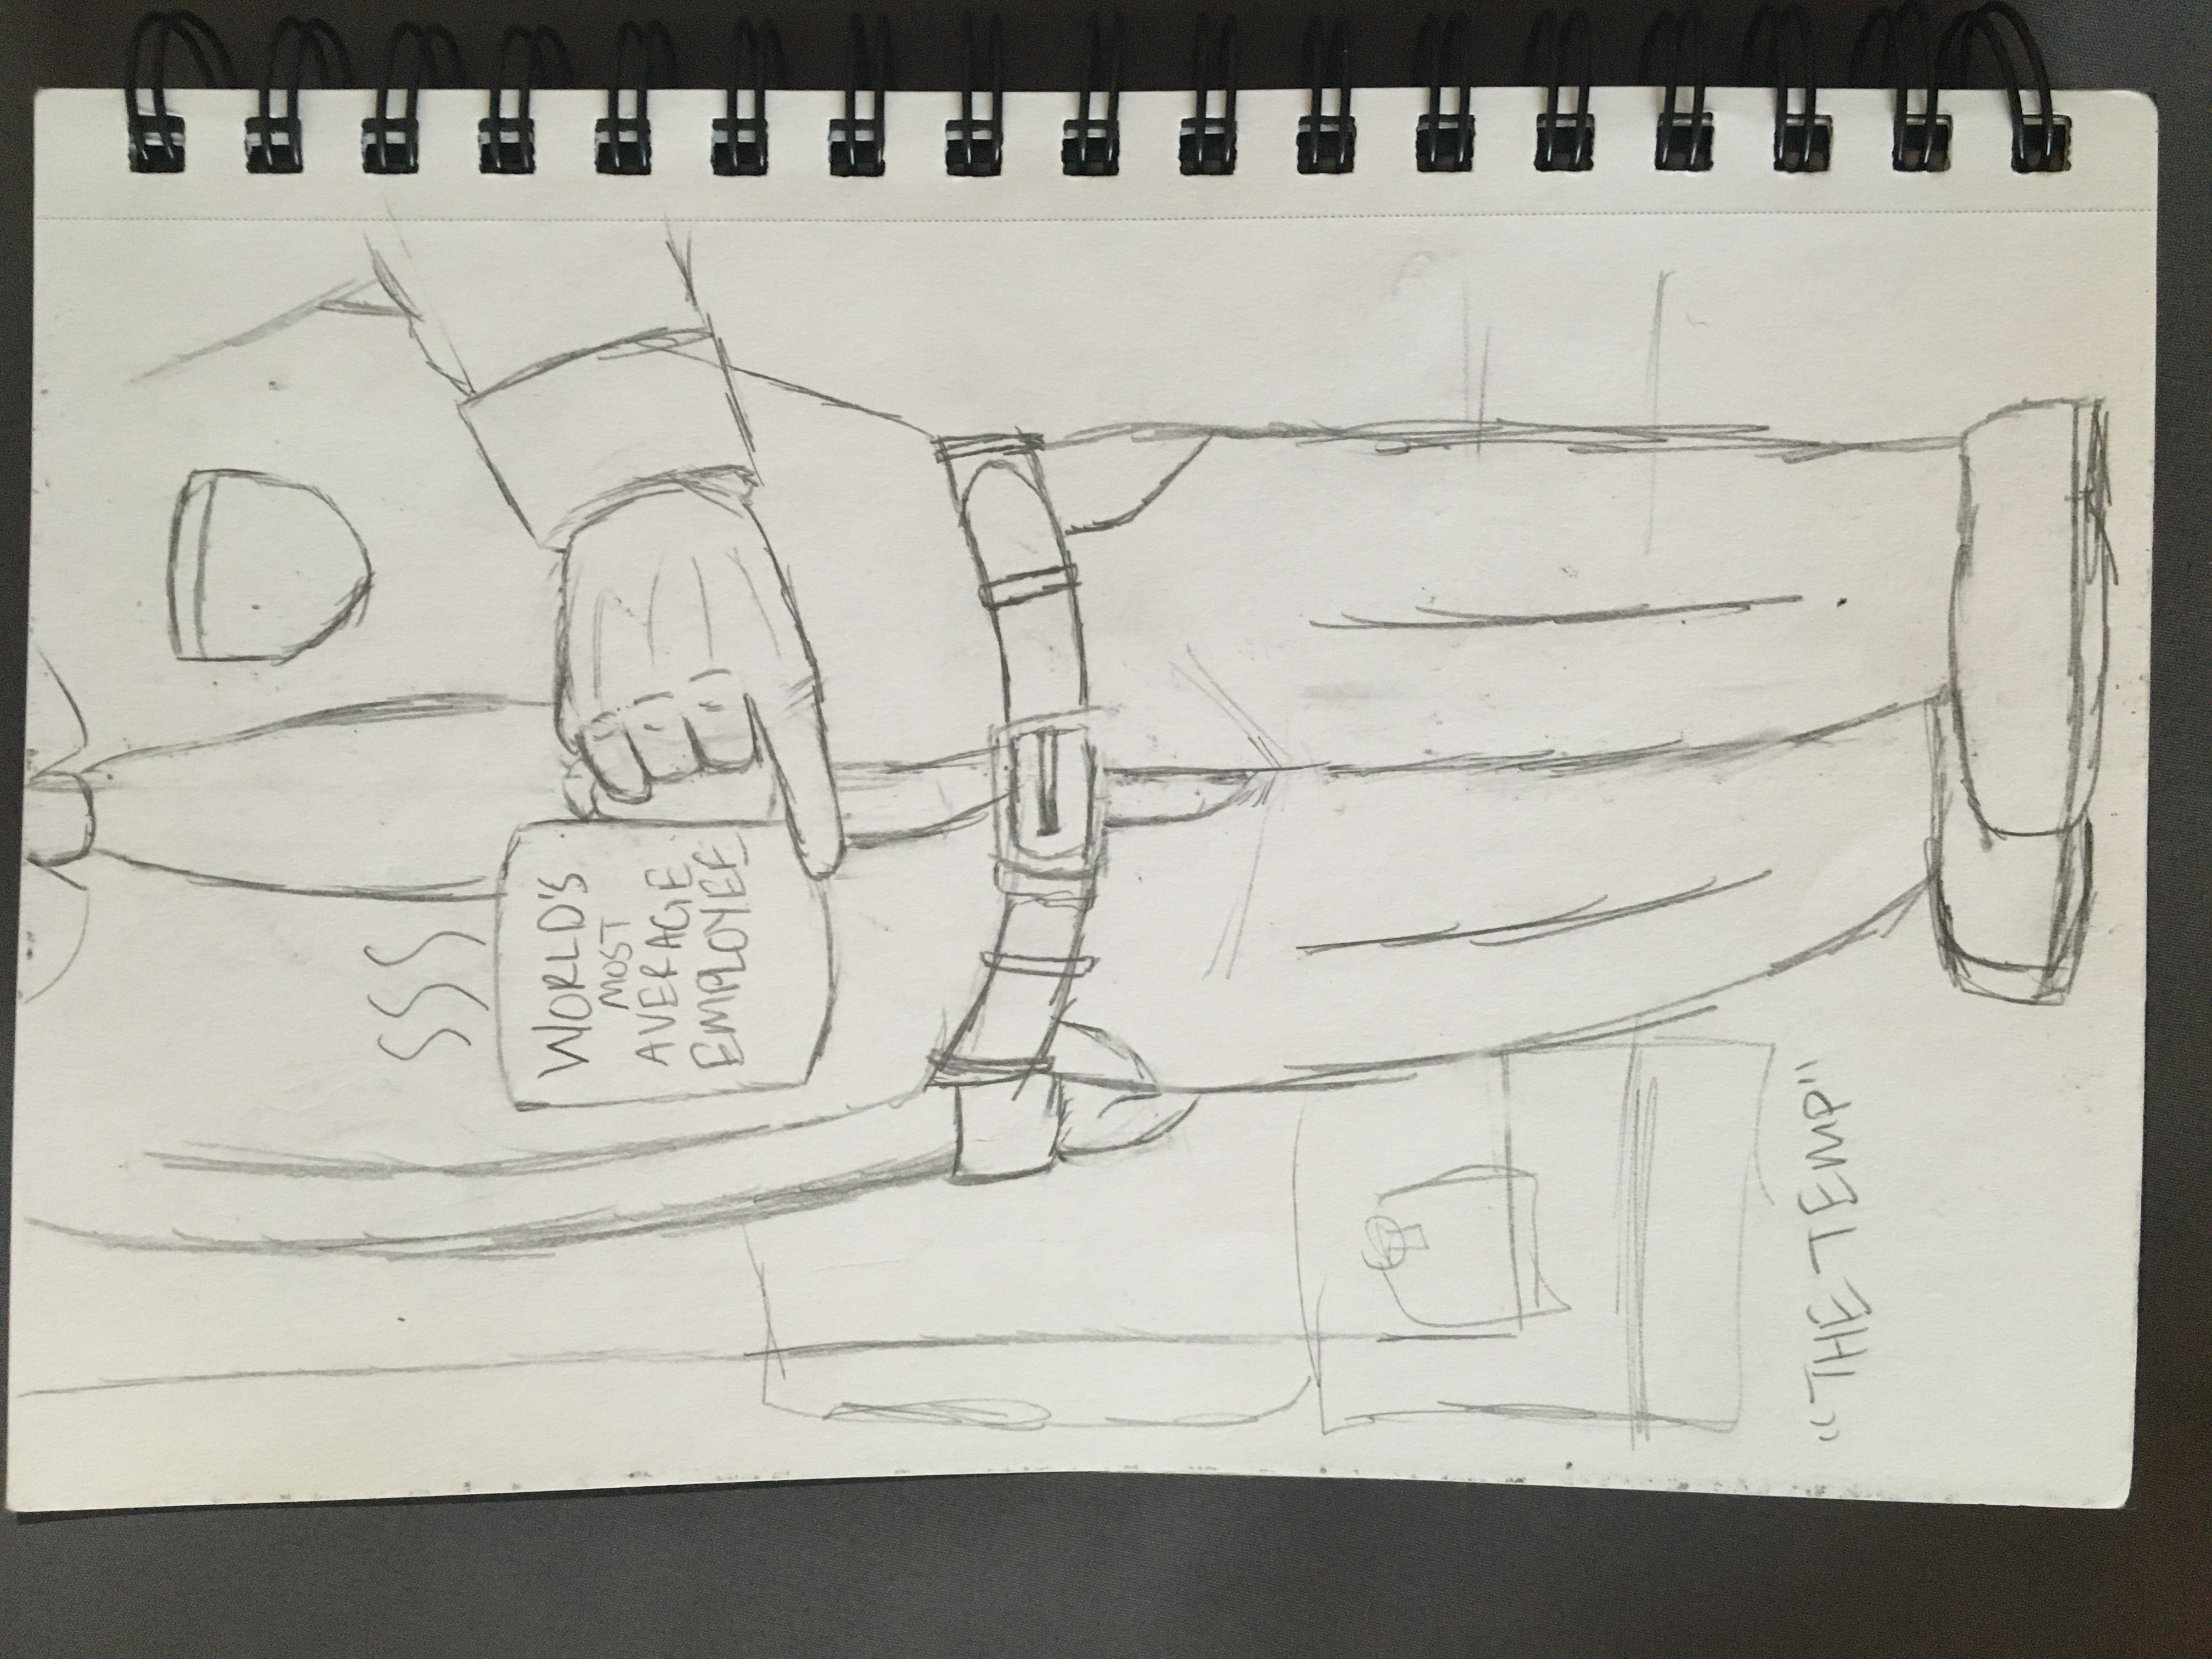 WORLD'S
MOST
AVERAGE
EMPLOYEE
"THE TEMP"